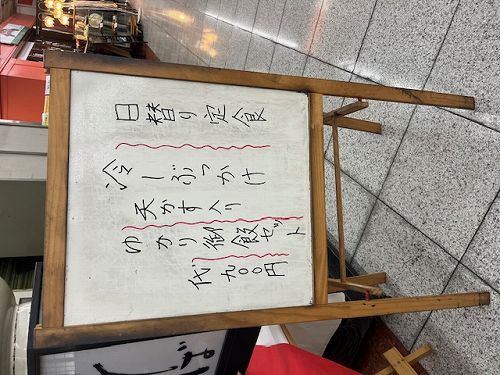 日替り定食
冷しぶっかけ
天かす入り
ゆかり御飯セット
代九〇〇円